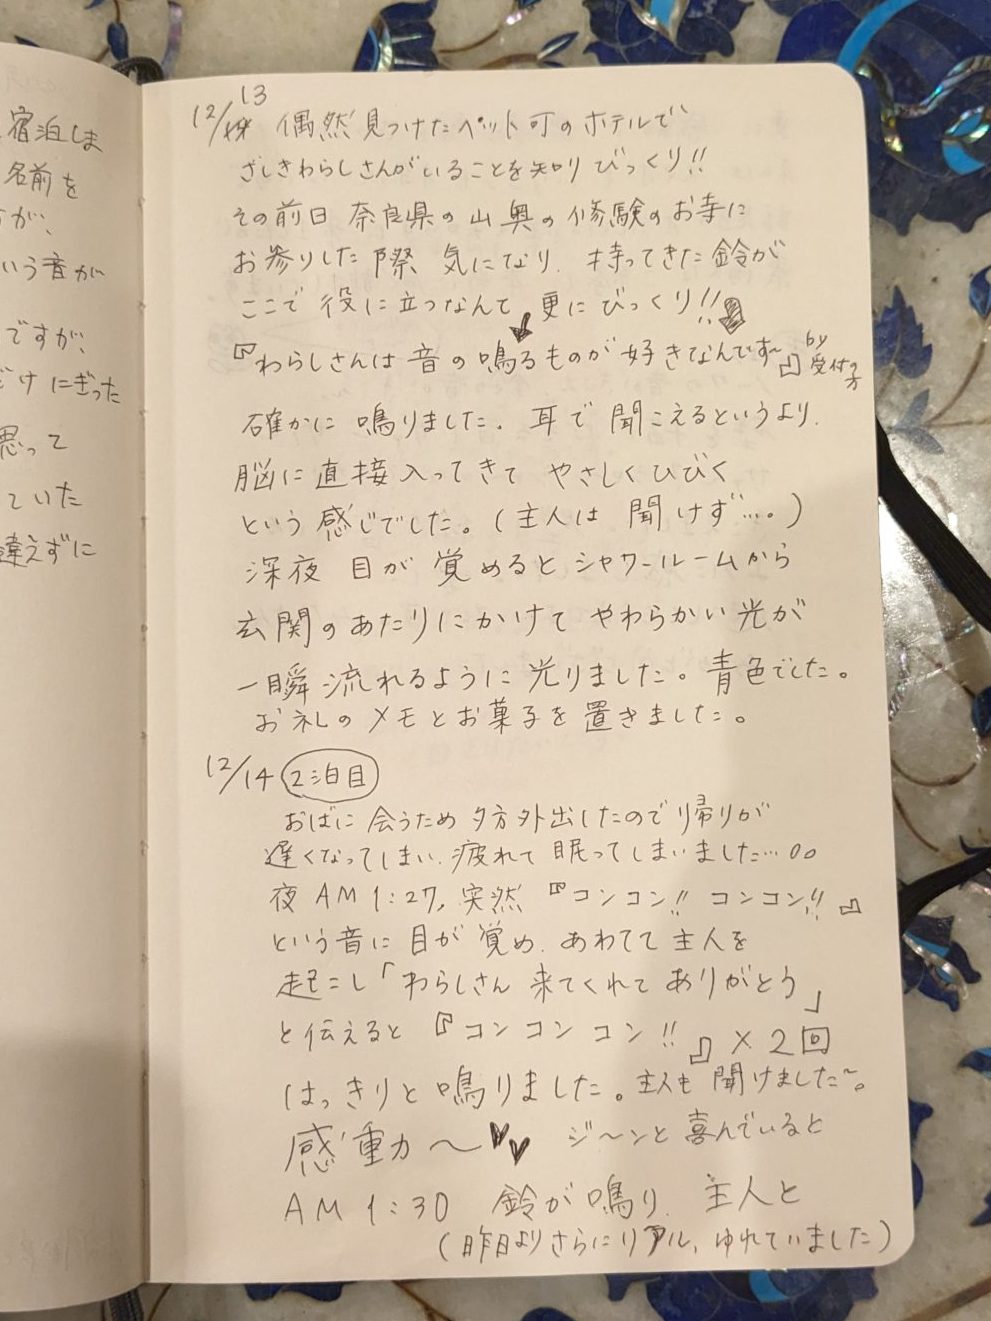 宿泊しま
名前を
が、
いう音が
ですが、
だけ にぎった
思って
ていた
違えずに
12/13 偶然 見つけた ペット可のホテルで
ざしきわらしさんがいることを知り びっくり!!
その前日 奈良県の山奥の修験のお寺に
お参りした際 気になり、持ってきた鈴が
ここで 役に立つなんて、更にびっくり!!
『わらしさんは 音の鳴るものが好きなんです〜』by 受付の方
確かに 鳴りました。耳で 聞こえるというより、
脳に直接入ってきて やさしくひびく
という感じでした。(主人は 聞けず…。)
深夜 目が覚めるとシャワールームから
玄関のあたりにかけて やわらかい光が
一瞬 流れるように 光りました。青色でした。
お礼のメモとお菓子を置きました。
12/14 2泊目
おばに 会うため 夕方外出したので 帰りが
遅くなってしまい、疲れて 眠ってしまいました…。。
夜 AM 1:27, 突然 『コンコン!! コンコン!!』
という音に 目が覚め、あわてて 主人を
起こし「わらしさん 来てくれて ありがとう」
と伝えると『コンコン コン!!』×2回
はっきりと 鳴りました。主人も 聞けました〜。
感動〜 ジ〜ンと喜んでいると
AM 1:30 鈴が鳴り、主人と
(昨日よりさらにリアル、ゆれていました)